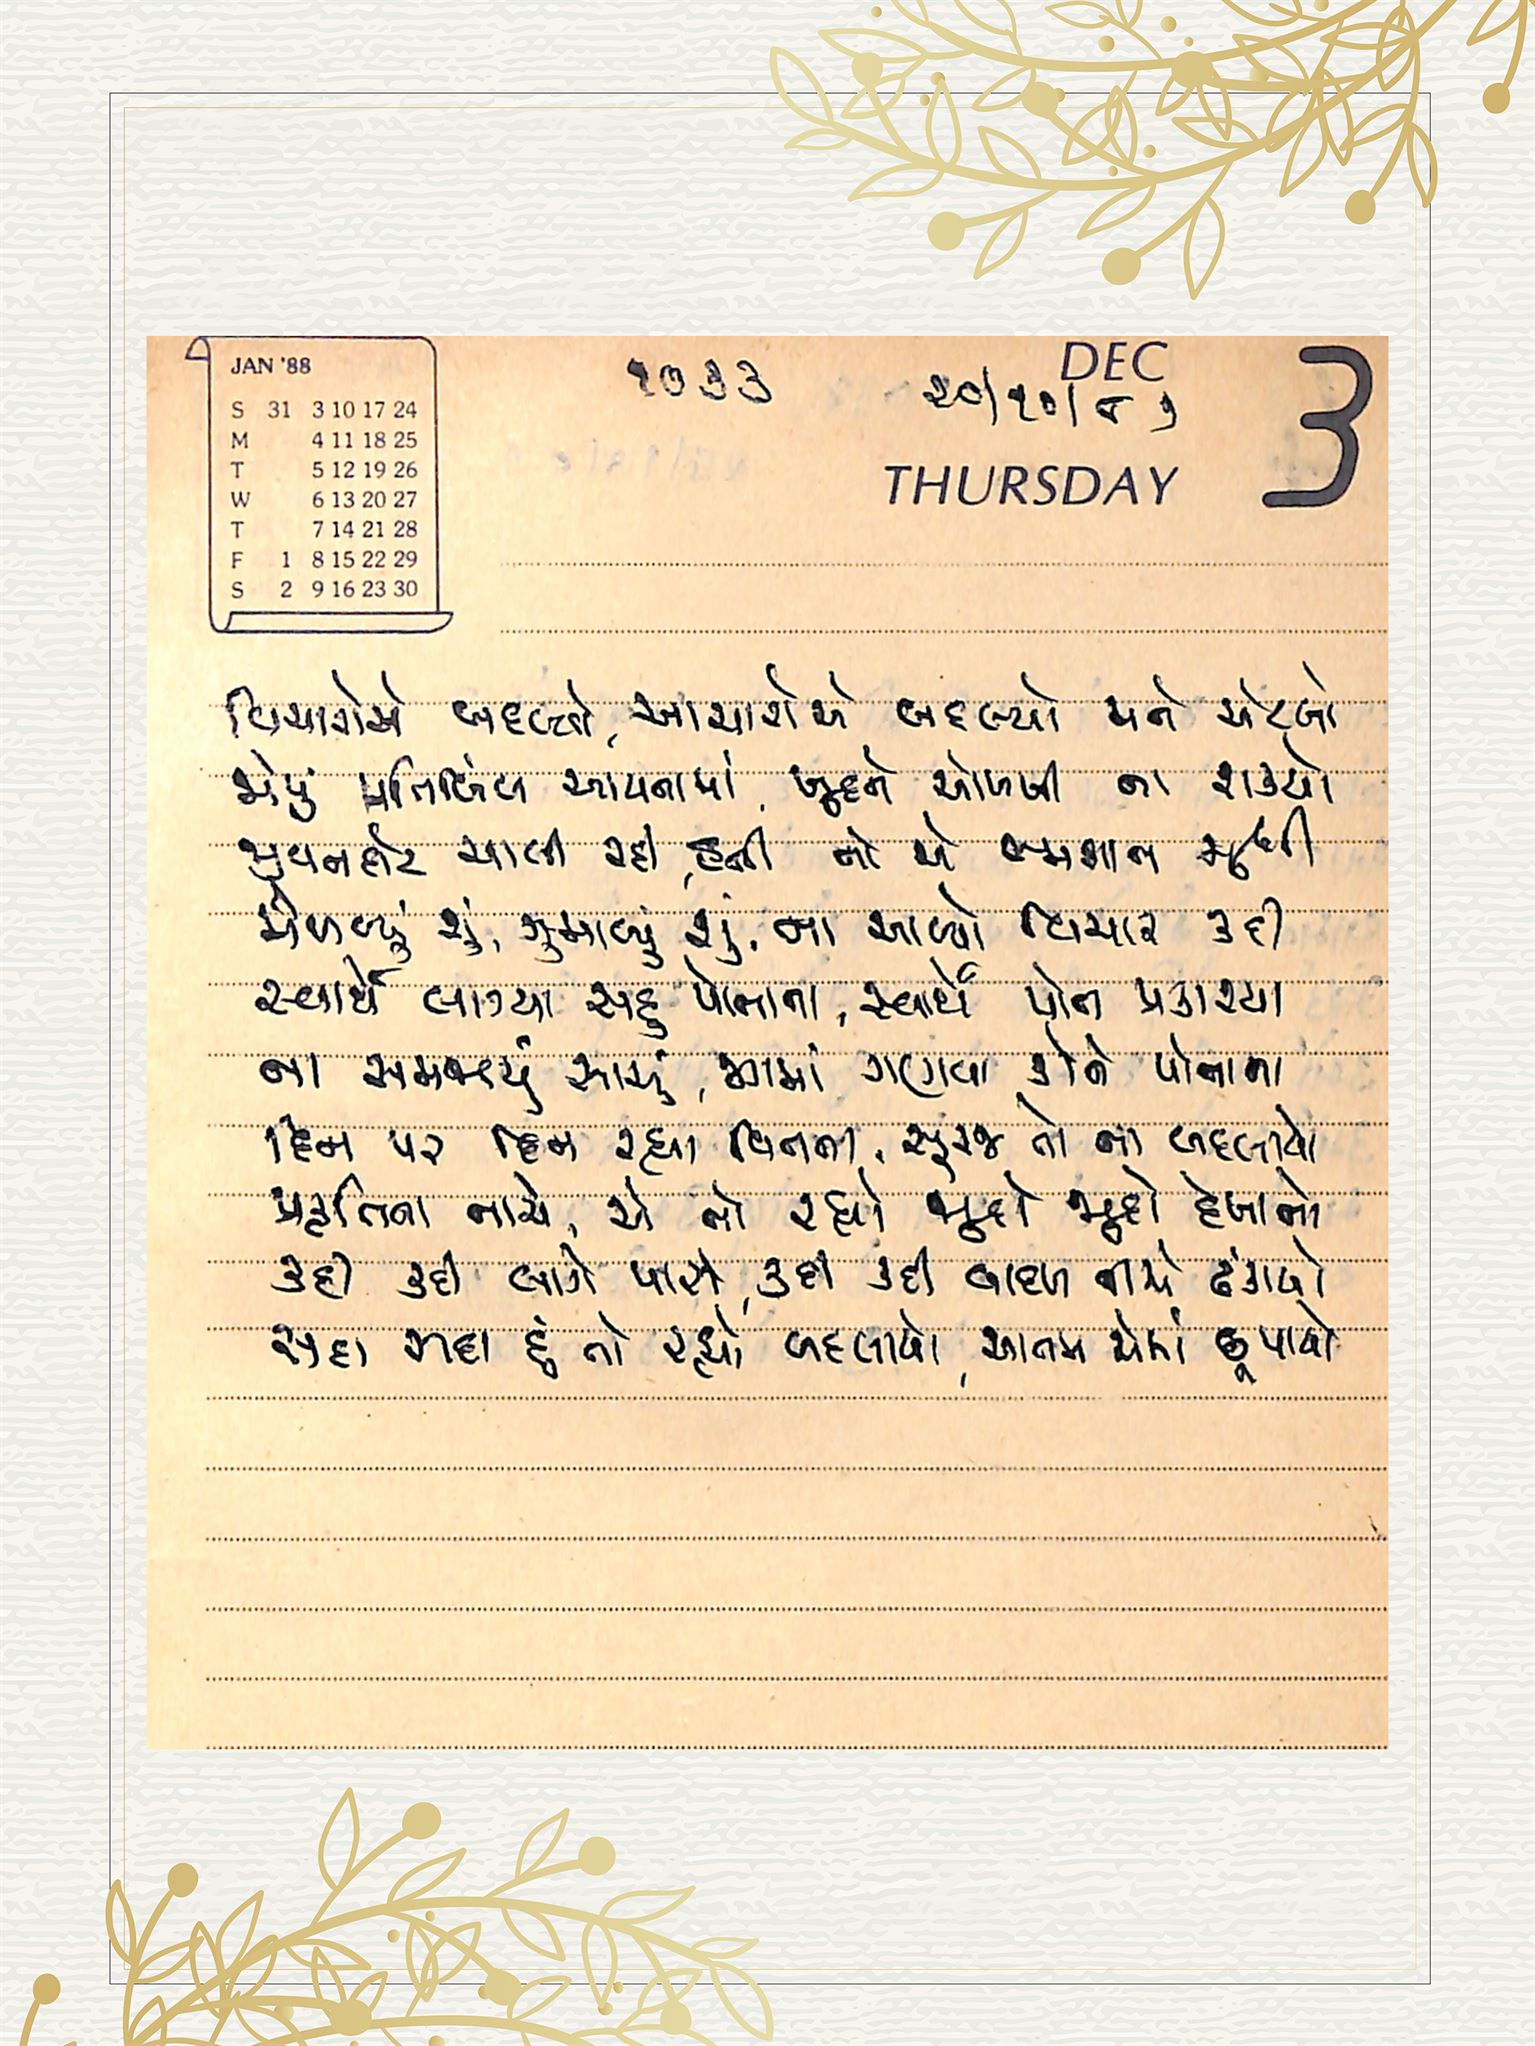 JAN '88
S 31 3 10 17 24
M 4 11 18 25
T 5 12 19 26
W 6 13 20 27
T 7 14 21 28
F 1 8 15 22 29
S 2 9 16 23 30
૧૦૩૩
DEC
૨૦/૧૦/૮૭
THURSDAY
3
વિચારોએ બદલ્યો, આચારોએ બદલ્યો મને એટલો
જોયું પ્રતિબિંબ આયનામાં, ખુદને ઓળખી ના શક્યો
જીવનભર ચાલી રહી હતી તો એ મૂકી
મેળવ્યું શું, ગુમાવ્યું શું, ના આવ્યો વિચાર કદી
સ્વાર્થે લાગ્યા સહુ પોતાના, સ્વાર્થે પોત પ્રકાશ્યા
ના સમજાયું સાચું, આમાં ગણવા કોને પોતાના
દિન પર દિન રહ્યા વિતતા, સૂરજ તો ના બદલાયો
પ્રકૃતિના નાચે, એ તો રહ્યો જુદો જુદો દેખાતો
કદી કદી લાગે પાસે, કદી કદી વાદળ નીચે ઢંકાયો
સદા હું તો રહ્યો બદલાયો, આતમ એમાં છૂપાયો